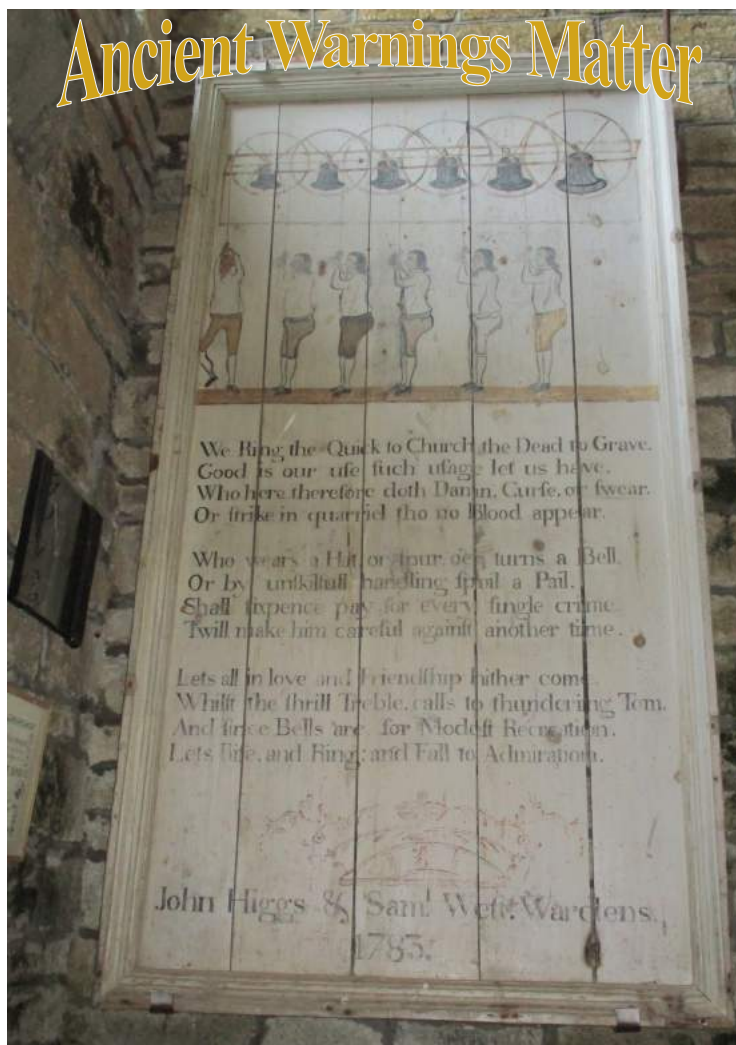 Ancient Warnings Matter
We Ring the Quick to Church, the Dead to Grave.
Good is our uſe ſuch uſage let us have.
Who here therefore doth Damn, Curſe, or ſwear.
Or ſtrike in quarriel tho no Blood appear.
Who wears a Hat, or turns a Bell.
Or by unſkilfull handling ſpoil a Pail.
Shall ſixpence pay for every ſingle crime.
Twill make him careful againſt another time.
Lets all in love and Friendſhip hither come
Whilſt the ſhrill Treble, calls to thundering Tom.
And ſince Bells are for Modeſt Recreation.
Lets Riſe, and Ring; and Fall to Admiration.
John Higgs & Samˡ Weſt: Wardens.,
1783.